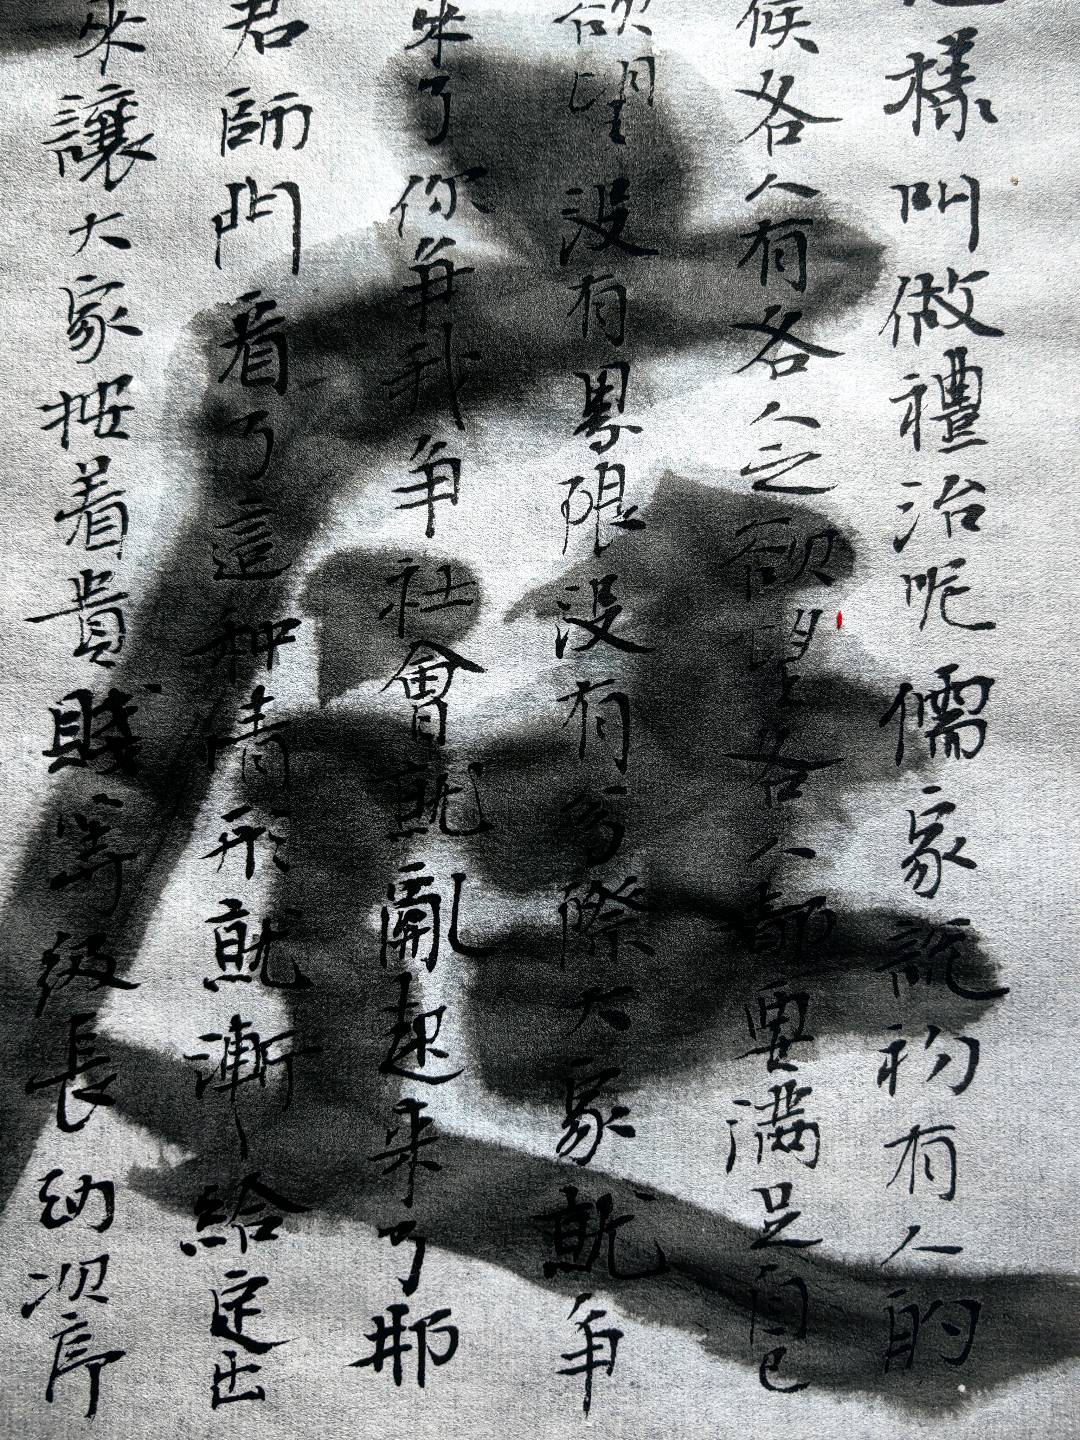 樣叫做禮治呢儒家說初有人的
候各人有各人之欲望各人都要滿足自己
欲望沒有界限沒有分際大家就爭
來了你爭我爭社會就亂起來了那
君師門看了這种情形就漸給定出
來讓大家按着貴賤等級長幼次序